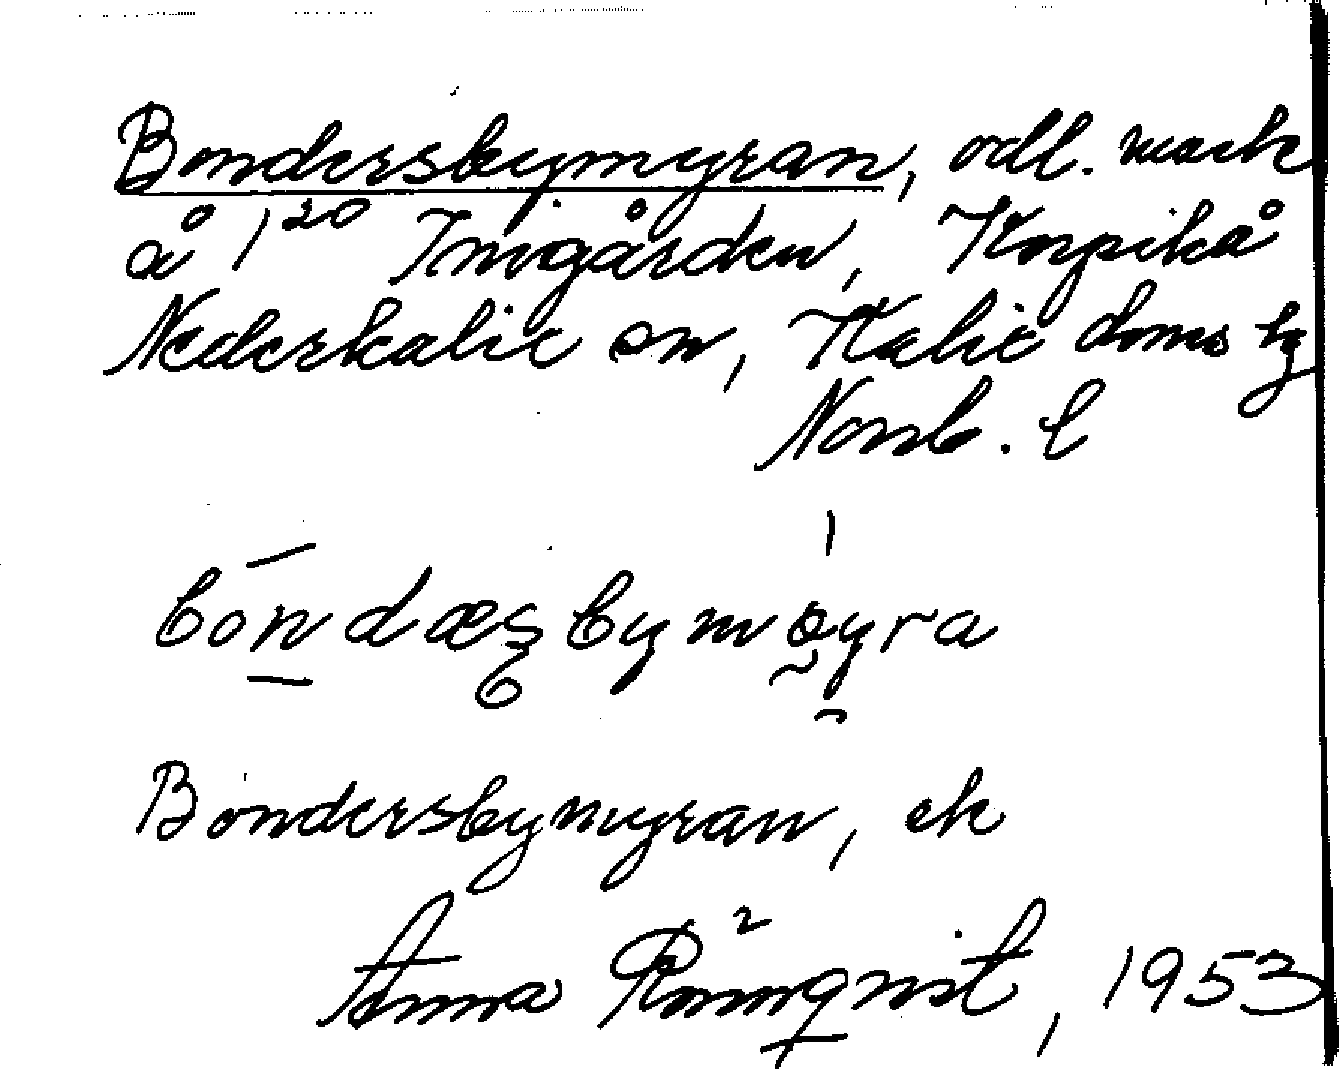 Bondersbymyran, odl. mark
å 1²⁰ Innigården, Korpikå
Nederkalix sn, Kalix doms lg
Norrb. l
bondæs̨bymøyra
Bondersbymyran, ek
Anna Rönnqvist, 1953